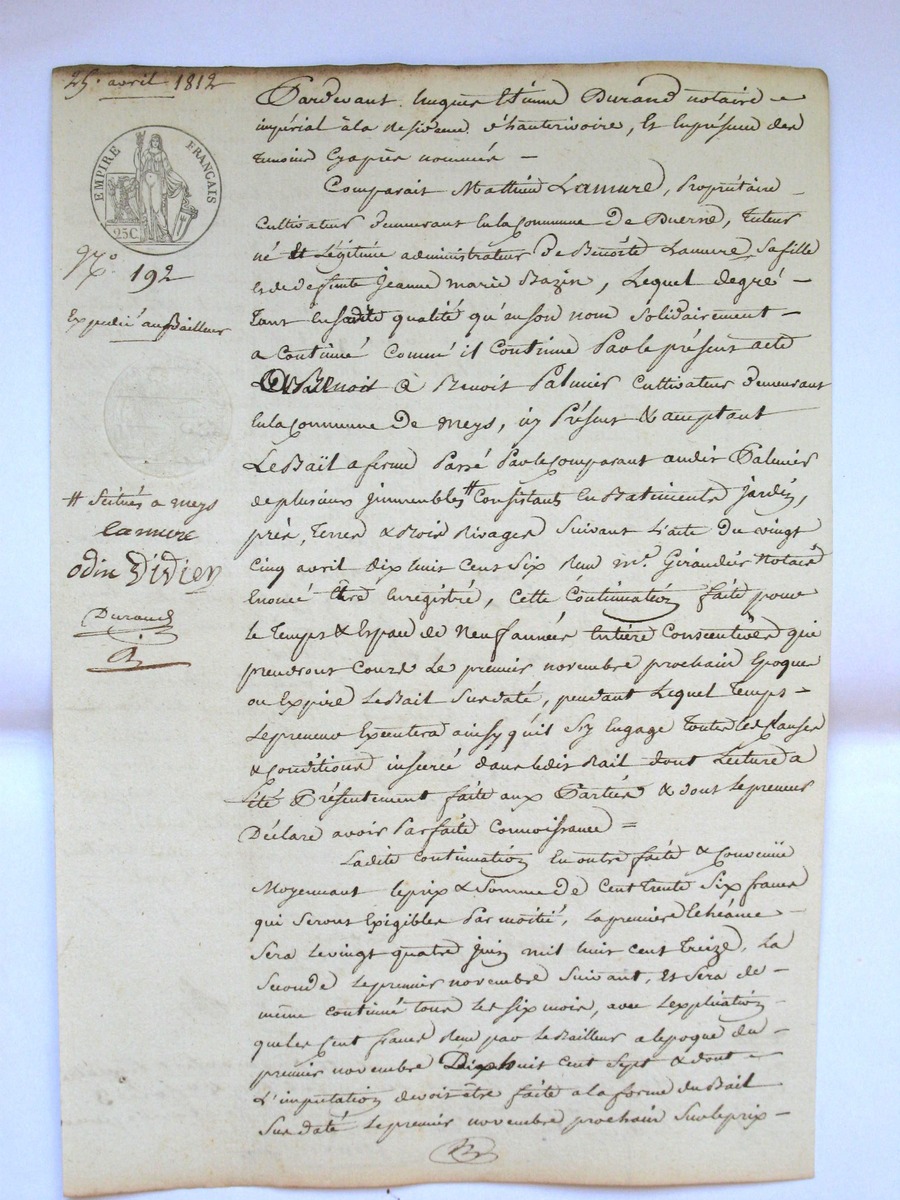 25. avril 1812
EMPIRE FRANÇAIS
25C
N.o 192
Expedié au Bailleur
# Scitués a meys
Lamure
odin Didier
Durand
Pardevant hugues Etienne Durand notaire
impérial à la residence d'hauterivoire, Et En présence des
temoins Cyaprès nommés
Comparait Mathieu Lamure, Propriétaire
Cultivateur demeurant En la Commune de Duerne, tuteur
né Et Légitime administrateur de Benoite Lamure, sa fille
et de deffunte Jeanne marie Bazin, Lequel degré
tant En sadite qualité qu'en son nom Solidairement
a Continué Comme il Continue Par le présent acte
à Benoit Palmier Cultivateur demeurant
En la Commune de meys, icy Présent & acceptant
Le Bail a ferme Passé Par le Comparant audit Palmier
de plusieurs immeubles # Consistants En Batiments, jardin,
près, terres & Bois Rivages Suivant L'acte du vingt
Cinq avril dix huit Cent Six Reçu m.e Giraudier Notaire
Enoncé être Enregistré, Cette Continuation faite pour
le temps & Espace de Neuf années Entière Consecutives qui
prendront Cours Le premier novembre prochain Epoque
ou Expire Le Bail Sus daté, pendant Lequel temps
Le preneur Executera ainsy qu'il S'y Engage toutes les Clauses
& Conditions inserée dans ledit Bail dont Lecture a
été Présentement faite aux Parties & dont le preneur
Déclare avoir Parfaite Connoissance =
Ladite Continuation En outre faite & Convenüe
Moyennant le prix & Somme de Cent trente Six francs
qui Seront Exigibles Par moitié, La première Echéance
Sera Le vingt quatre juin mil huit cent treize, La
Seconde Le premier novembre Suivant, Et Sera de
même Continué tous les Six mois, avec L'explication
que les Cent francs Reçu par Le Bailleur a l'epoque du
premier novembre Dix huit Cent Sept & dont
L'imputation devoit être faite a la forme du Bail
Sus daté Le premier novembre prochain Sur le prix